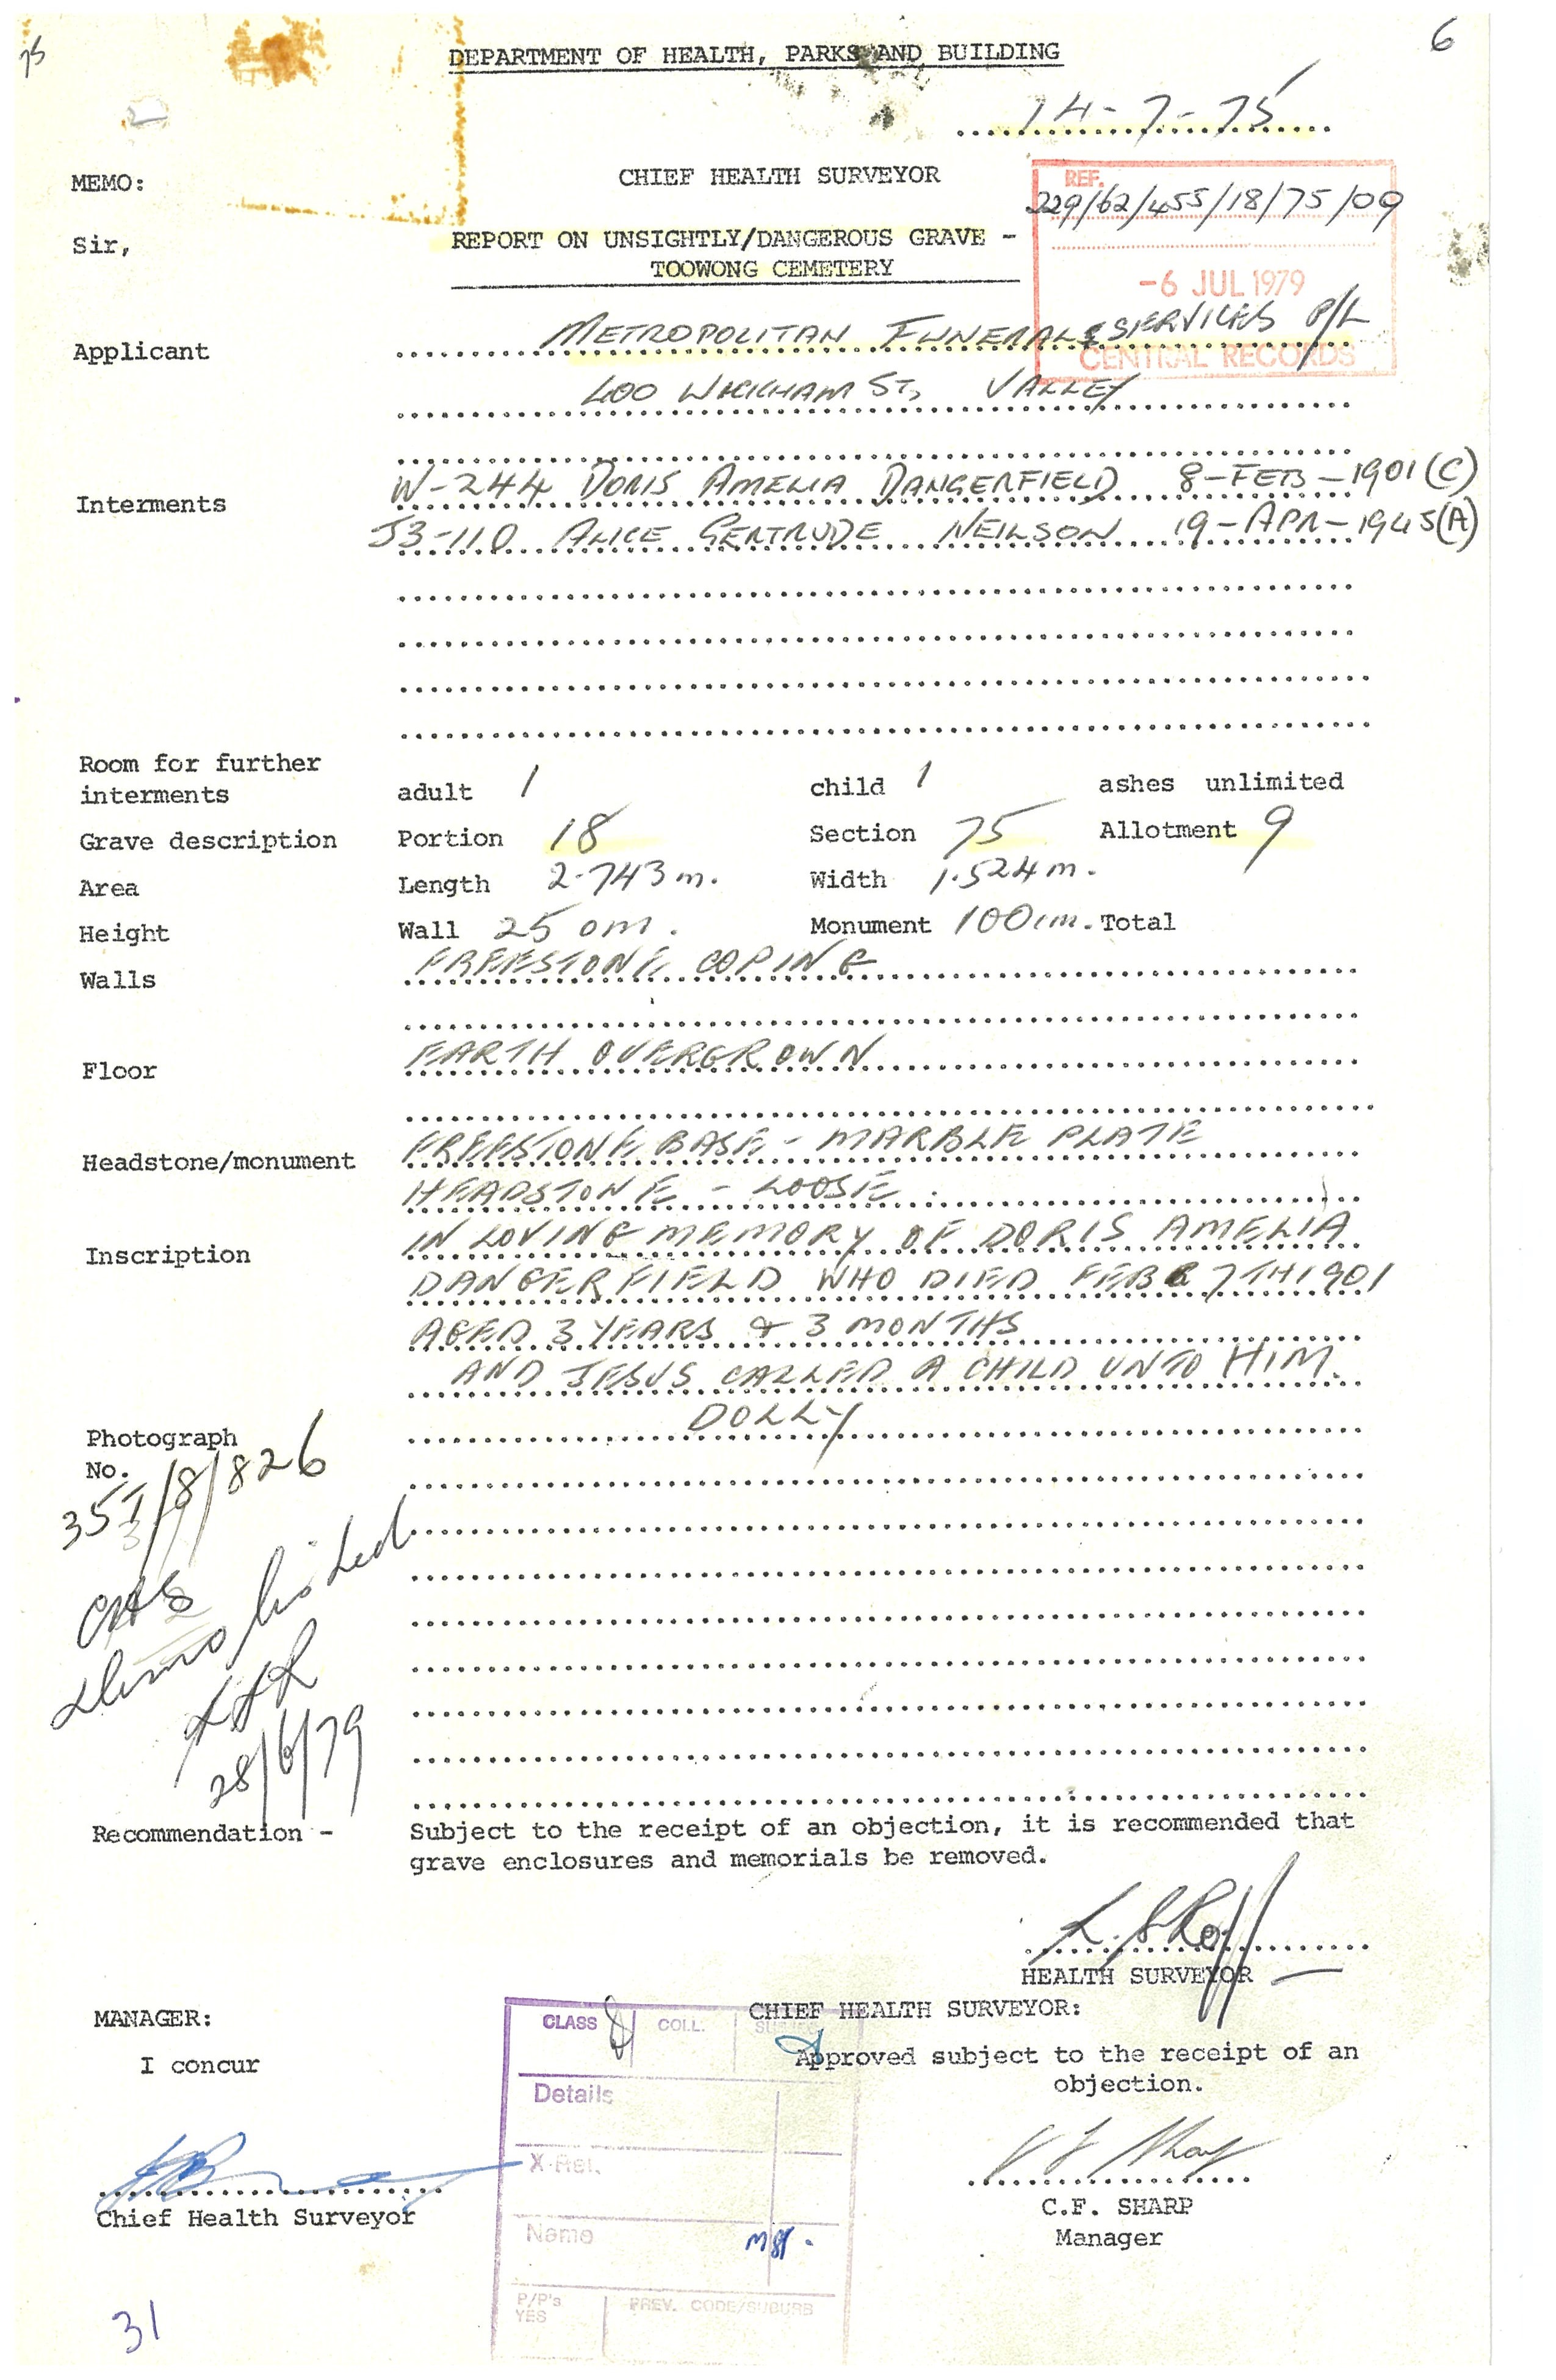 75
6
DEPARTMENT OF HEALTH, PARKS AND BUILDING
14-7-75
MEMO:
CHIEF HEALTH SURVEYOR
REF.
229/62/455/18/75/09
Sir,
REPORT ON UNSIGHTLY/DANGEROUS GRAVE -
TOOWONG CEMETERY
-6 JUL 1979
CENTRAL RECORDS
Applicant METROPOLITAN FUNERAL SERVICES P/L
400 WICKHAM ST, VALLEY
Interments W-244 DORIS AMELIA DANGERFIELD 8-FEB-1901 (C)
J3-110 ALICE GERTRUDE NEILSON 19-APR-1945 (A)
Room for further
interments adult 1 child 1 ashes unlimited
Grave description Portion 18 Section 75 Allotment 9
Area Length 2.743 m. Width 1.524 m.
Height Wall 25 cm. Monument 100 cm. Total
Walls FREESTONE COPING
Floor EARTH OVERGROWN
Headstone/monument FREESTONE BASE - MARBLE PLATE
HEADSTONE - LOOSE.
Inscription IN LOVING MEMORY OF DORIS AMELIA
DANGERFIELD WHO DIED FEB 7TH 1901
AGED 3 YEARS & 3 MONTHS
AND JESUS CALLED A CHILD UNTO HIM.
DOLLY
Photograph
No.
/8/826
CHS
demolished
28/6/79
Recommendation - Subject to the receipt of an objection, it is recommended that
grave enclosures and memorials be removed.
HEALTH SURVEYOR
MANAGER:
CHIEF HEALTH SURVEYOR:
I concur
Approved subject to the receipt of an
objection.
CLASS COLL.
Details
X-Ref.
Name
P/P's
YES
PREV. CODE/SUBURB
Chief Health Surveyor
C.F. SHARP
Manager
31